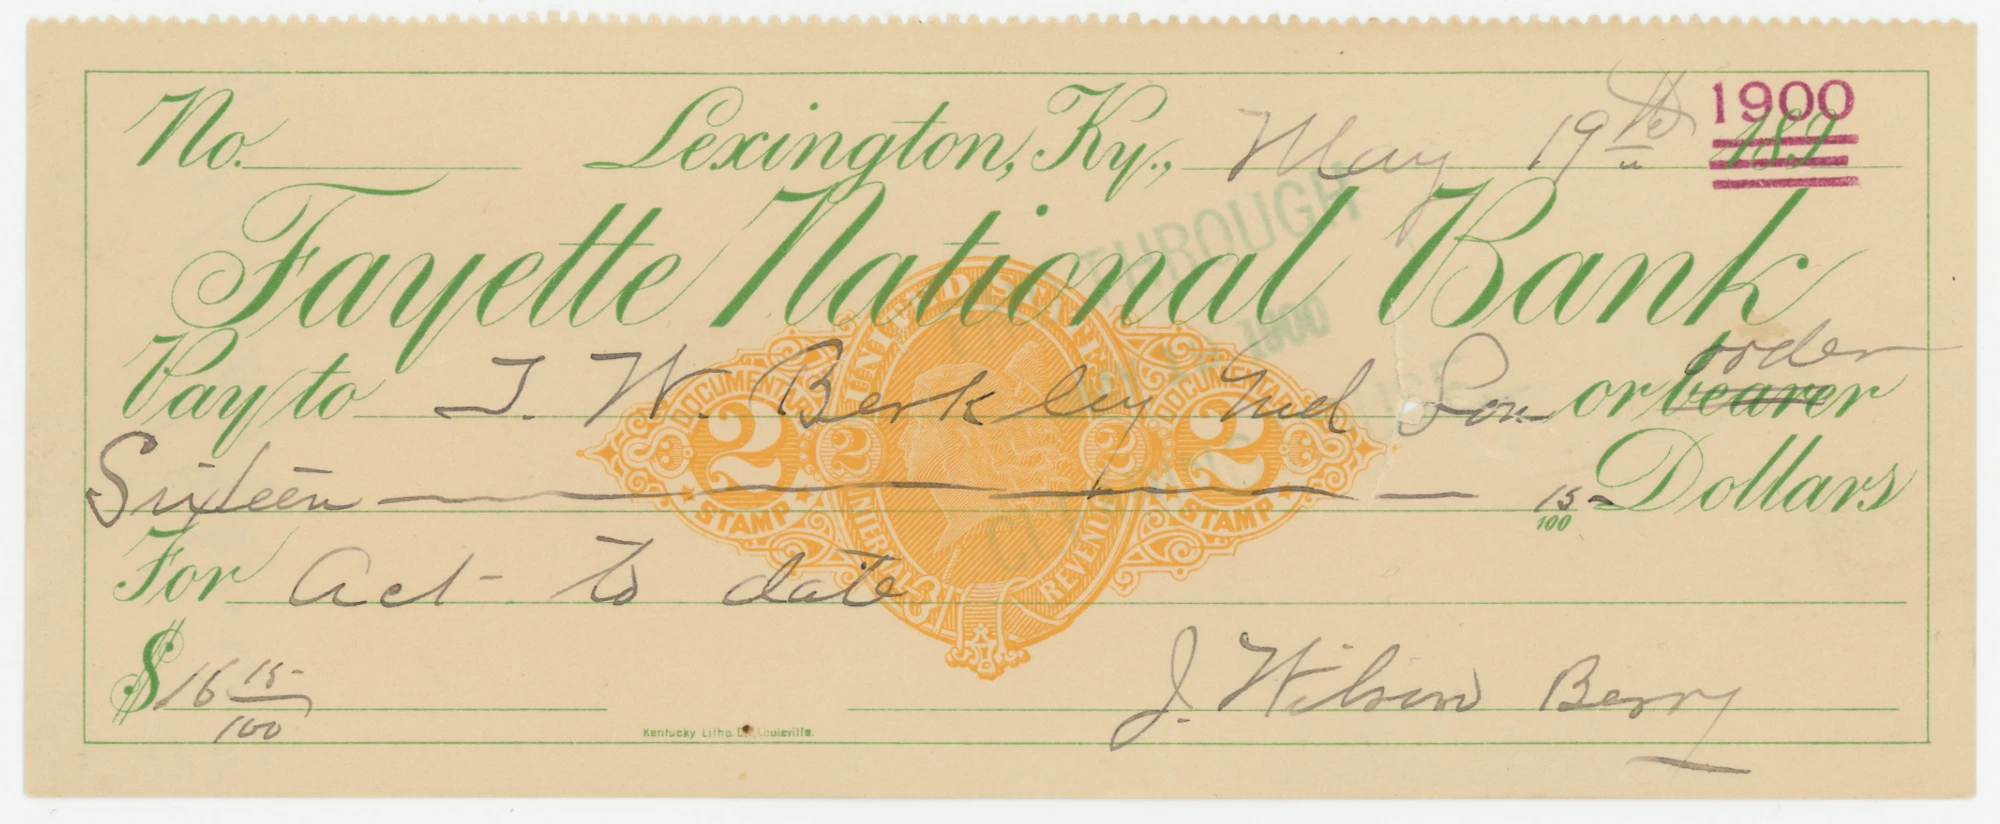 No. Lexington, Ky., May 19th 1900 189
Fayette National Bank
THROUGH
1900
Pay to J. W. Berkley and Son or bearer order
Sixteen 15/100 Dollars
For Act to date
$16 15/100
J. Wilson Berry
UNITED STATES
INTERNAL REVENUE
DOCUMENTARY 2 STAMP
2
2
DOCUMENTARY 2 STAMP
Kentucky Litho. Co. Louisville.